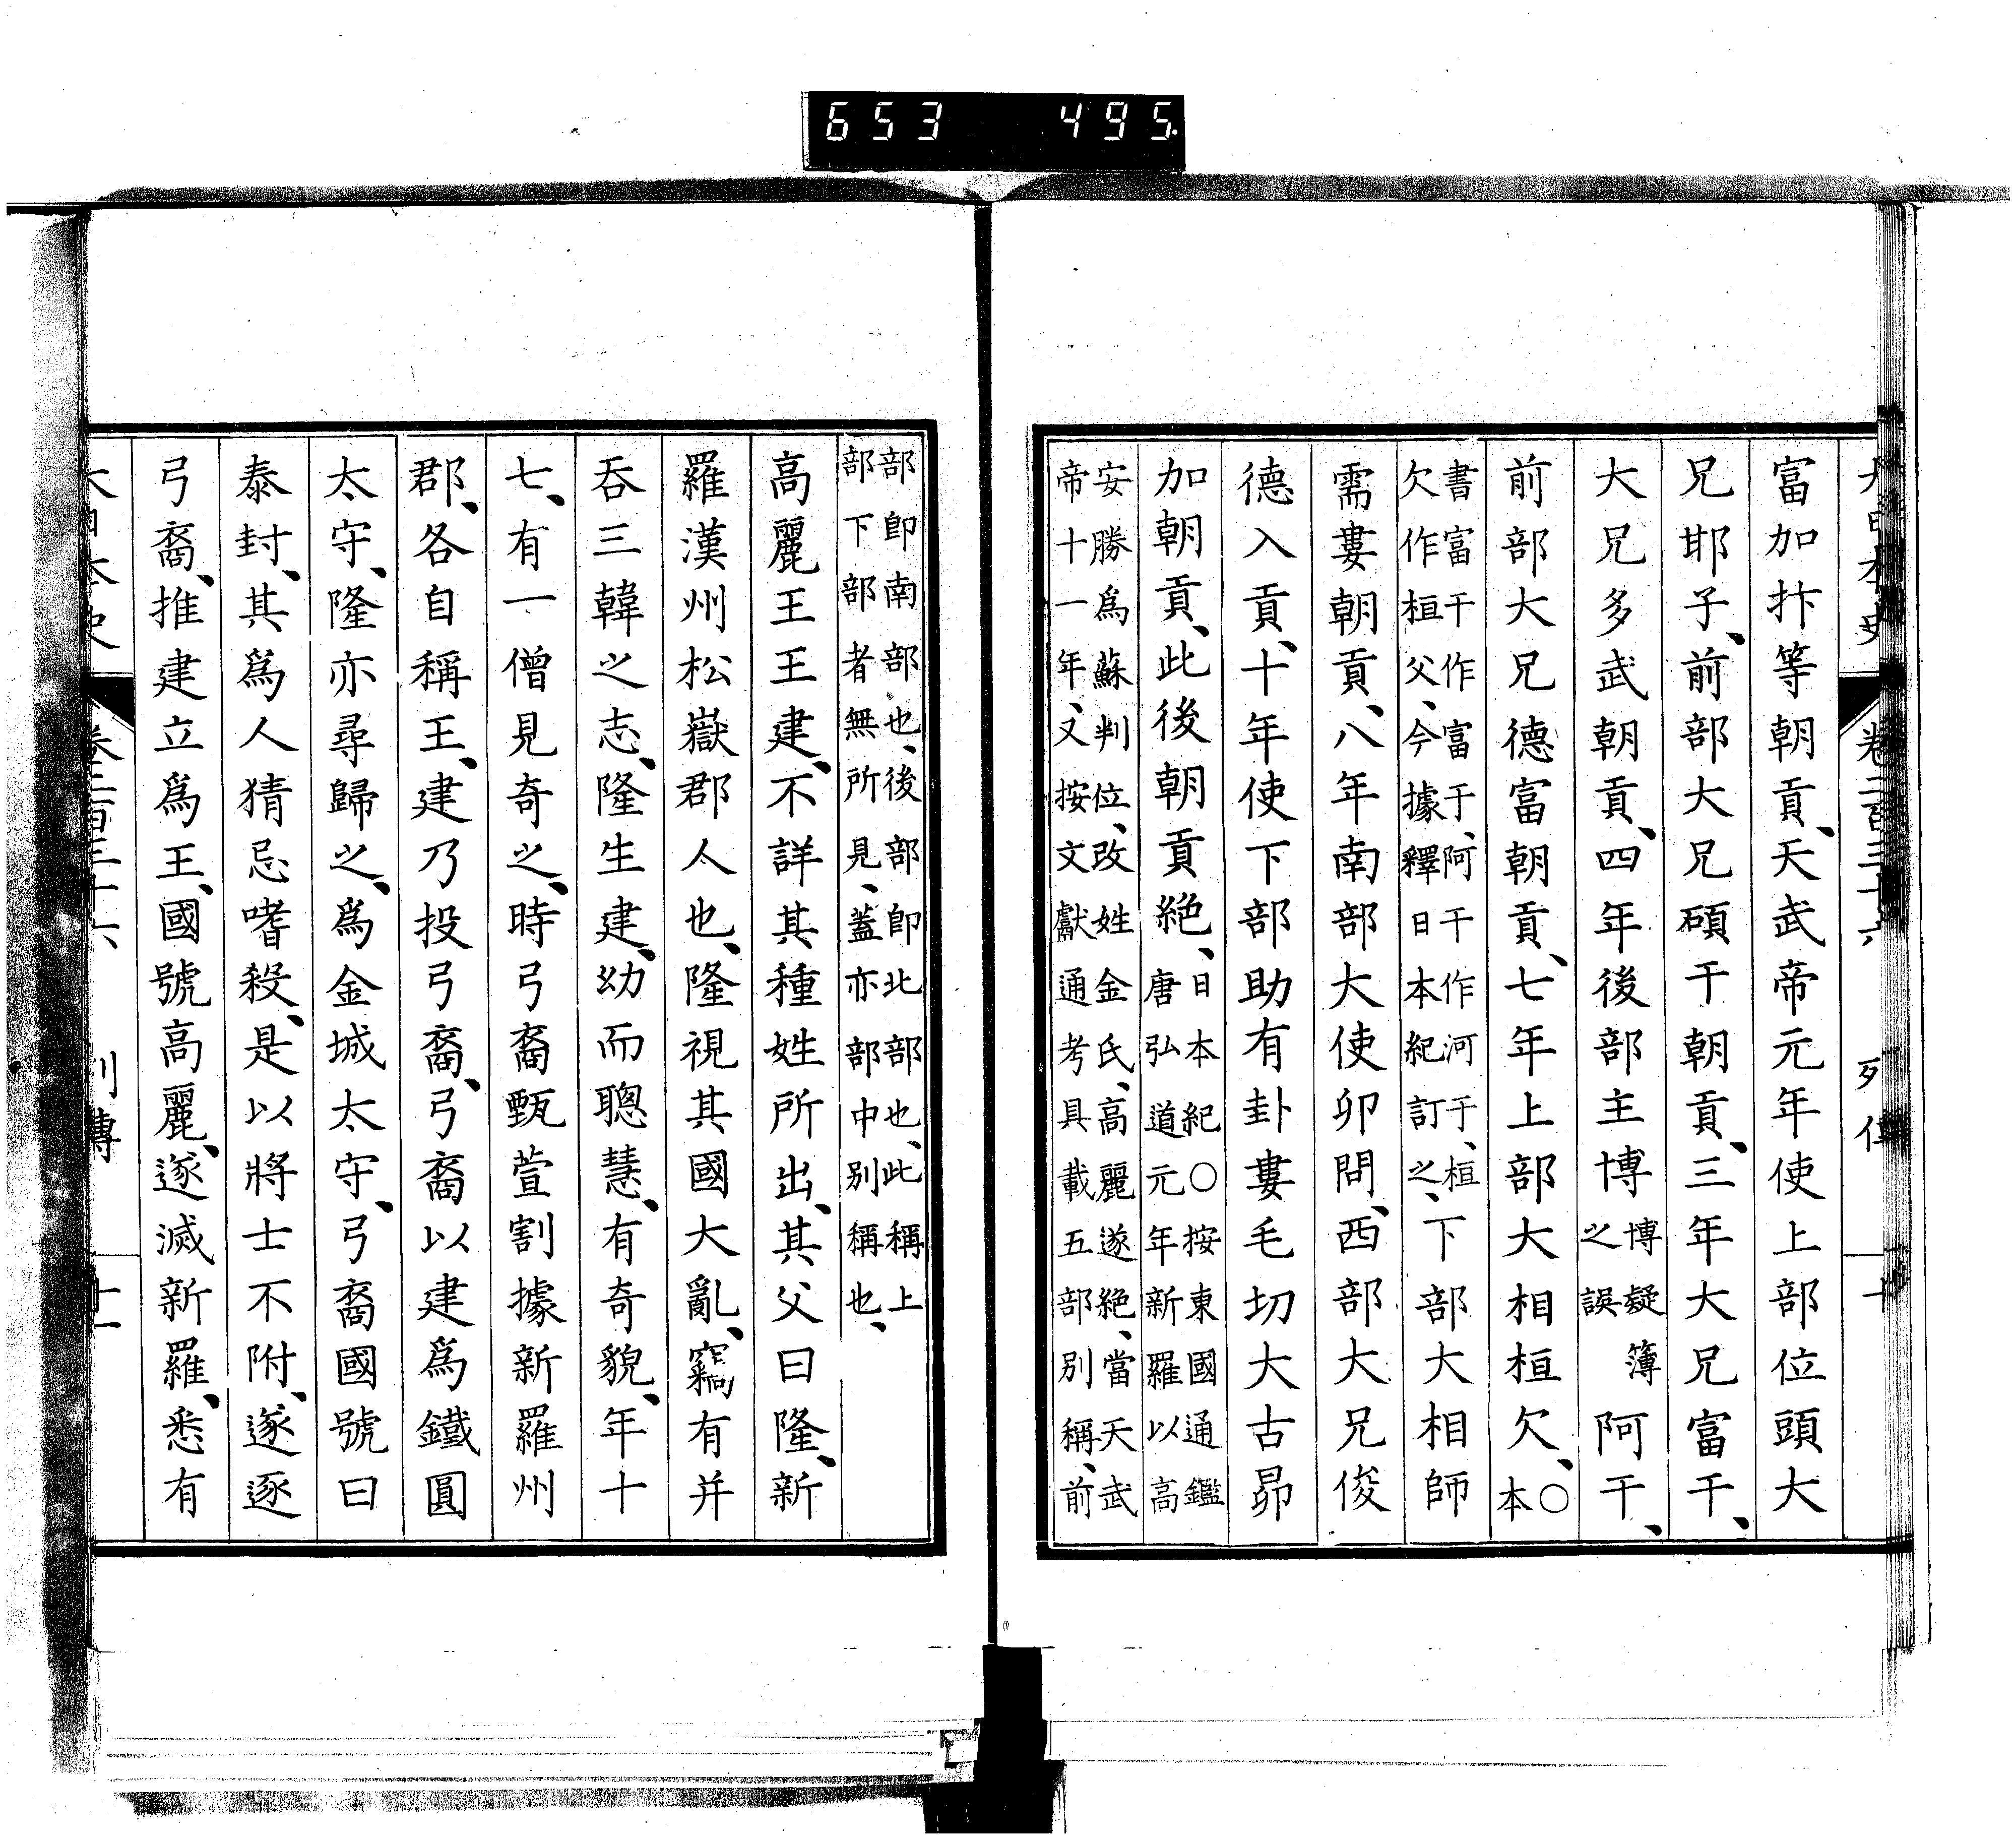 653 495.
大日本史 卷二百三十六 列傳 十
富加抃等朝貢、天武帝元年使上部位頭大
兄耶子、前部大兄碩干朝貢、三年大兄富干、
大兄多武朝貢、四年後部主博博疑簿之誤阿干、
前部大兄德富朝貢、七年上部大相桓欠、〇本
書富干作富于、阿干作河于、桓欠作桓父、今據釋日本紀訂之、下部大相師
需婁朝貢、八年南部大使卯問、西部大兄俊
德入貢、十年使下部助有卦婁毛切大古昴
加朝貢、此後朝貢絶、日本紀〇按東國通鑑唐弘道元年新羅以高
安勝爲蘇判位、改姓金氏、高麗遂絶、當天武帝十一年、又按文獻通考具載五部別稱、前
部卽南部也、後部卽北部也、此稱上部下部者無所見、蓋亦部中別稱也、
高麗王王建、不詳其種姓所出、其父曰隆、新
羅漢州松嶽郡人也、隆視其國大亂、竊有并
吞三韓之志、隆生建、幼而聰慧、有奇貌、年十
七、有一僧見奇之、時弓裔甄萱割據新羅州
郡、各自稱王、建乃投弓裔、弓裔以建爲鐵圓
太守、隆亦尋歸之、爲金城太守、弓裔國號曰
泰封、其爲人猜忌嗜殺、是以將士不附、遂逐
弓裔、推建立爲王、國號高麗、遂滅新羅、悉有
大日本史 卷二百三十六 列傳 十一